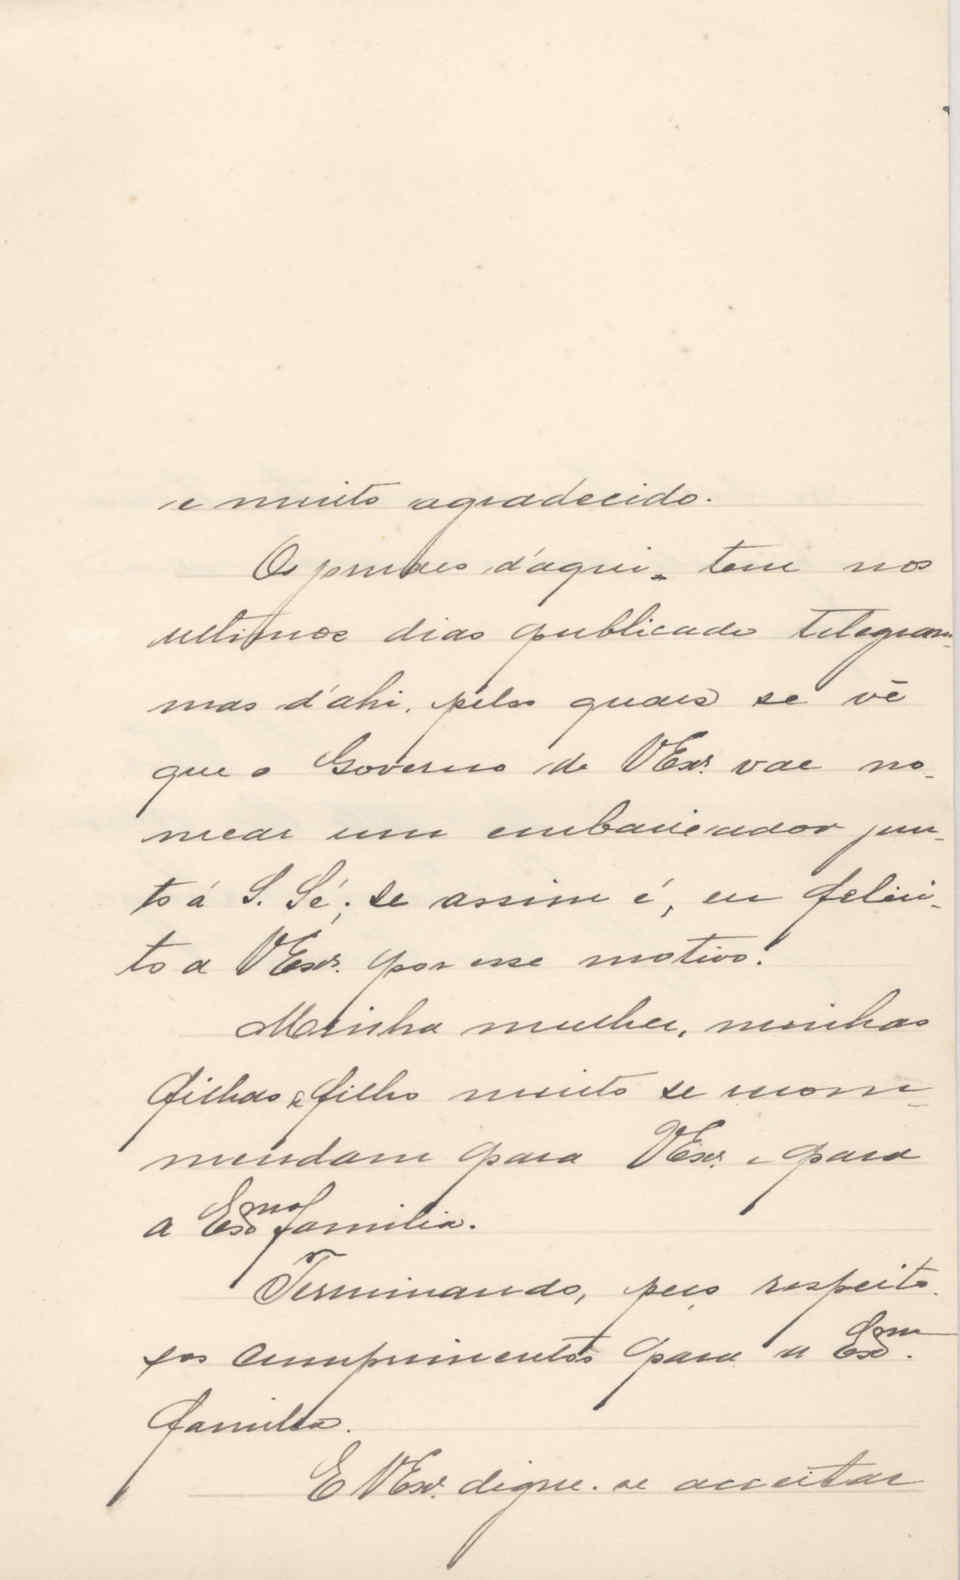 e muito agradecido.
Os jornaes d'aqui tem nos
ultimos dias publicado telegram-
mas d'ahi, pelos quaes se vê
que o Governo de VExª. vae no-
mear um embaixador jun-
to á S. Sé; se assim é, eu felici-
to a VExª. por esse motivo.
Minha mulher, minhas
filhas e filho muito se recom-
mendam para VExª. e para
a Exma familia.
Terminando, peço respeito-
sos cumprimentos para a Exm.
familia.
E VExª. digne-se acceitar